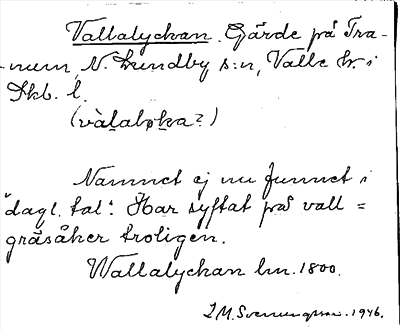 Vallalyckan. Gärde på Tra-
num, N. Lundby s:n, Valle hr. i
Skb. l.
(vàlaḷøka?)
Namnet ej nu funnet i
"dagl. tal". Har syftat på vall =
gräsåker troligen.
Wallalyckan lm. 1800.
I. M. Svenungsson. 1946.